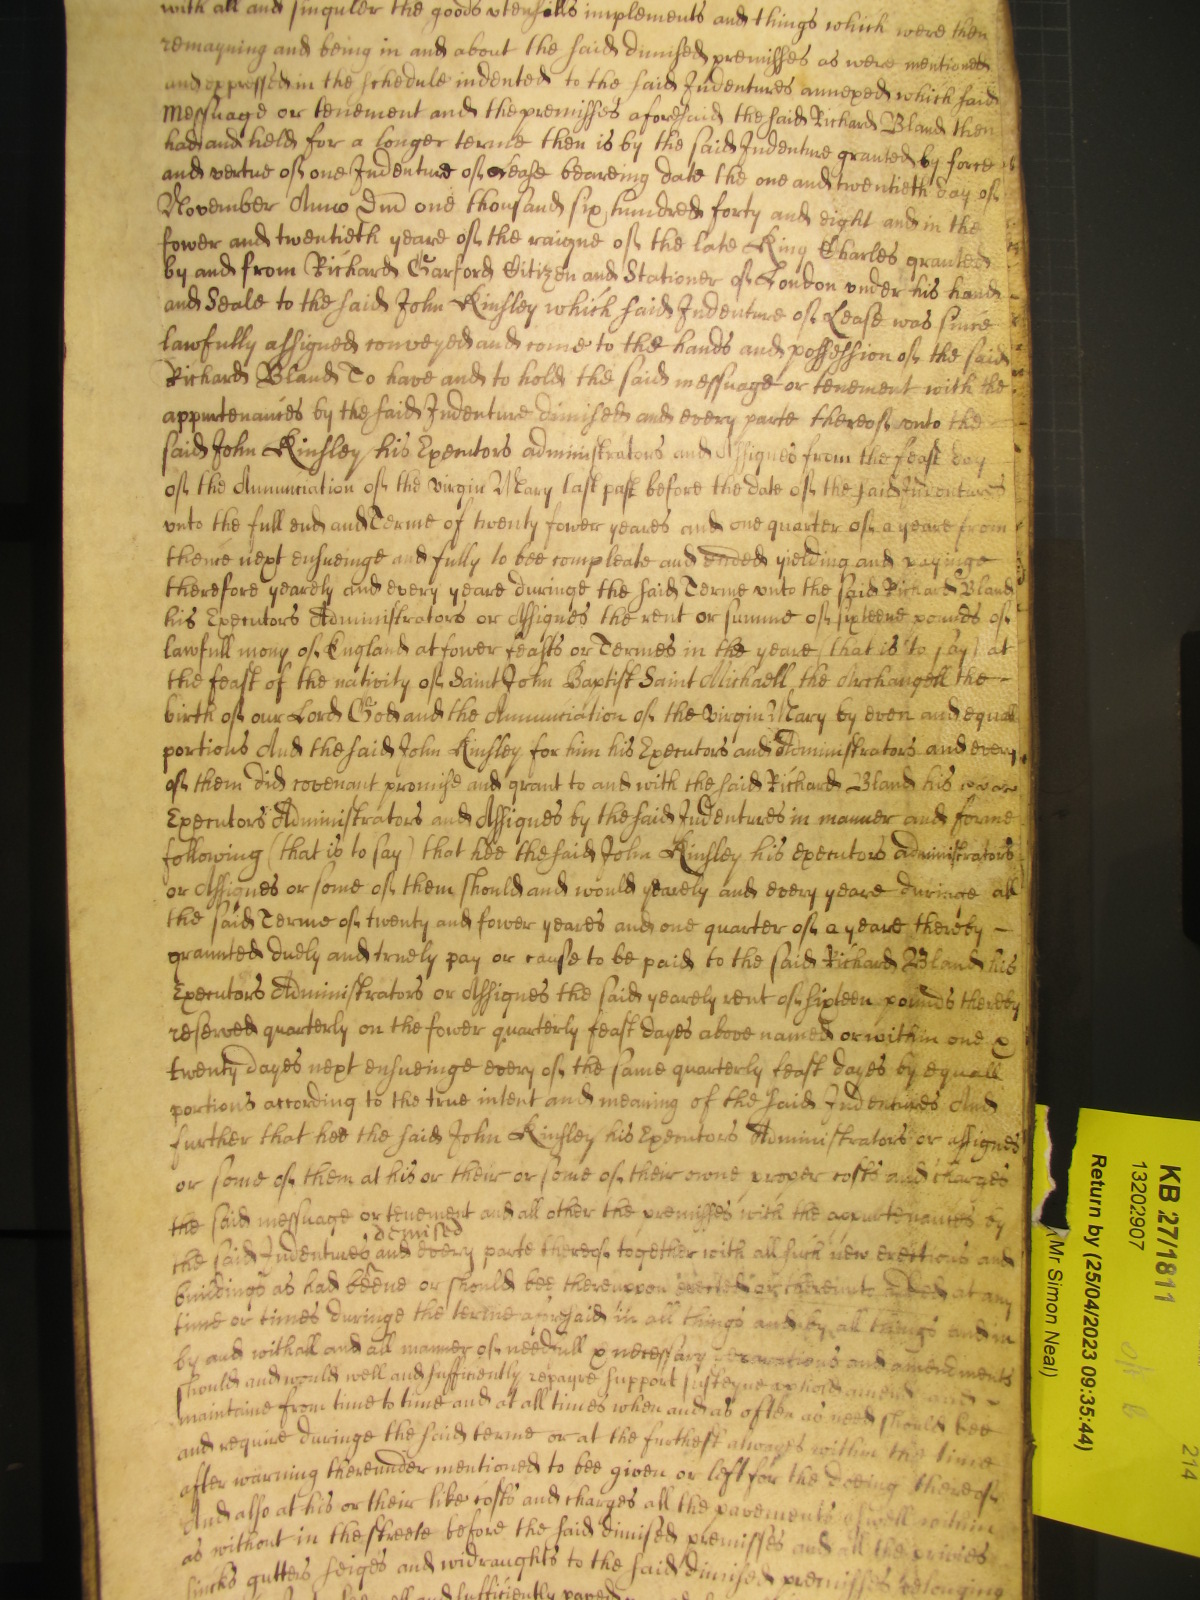 with all and singuler the goods utensills implements and things which were then
remayning and being in and about the said dimised premisses as were mentioned
and expressed in the schedule indented to the said Indentures annexed which said
Messuage or tenement and the premisses aforesaid the said Richard Bland then
had and held for a longer terme then is by the said Indenture granted by force
and vertue of one Indenture of Lease beareing date the one and twentieth day of
November Anno Dm̄ one thousand six hundred forty and eight and in the
fower and twentieth yeare of the raigne of the late King Charles granted
by and from Richard Garford Citizen and Stationer of London under his hand
and Seale to the said John Kinsley which said Indenture of Lease was since
lawfully assigned conveyed and come to the hands and possession of the said
Richard Bland To have and to hold the said messuage or tenement with the
appurtenances by the said Indenture dimised and every parte thereof unto the
said John Kinsley his Executors administrators and Assignes from the feast day
of the Annunciation of the virgin Mary last past before the date of the said Indentures
unto the full end and Terme of twenty fower yeares and one quarter of a yeare from
thence next ensueinge and fully to bee compleate and ended yielding and payinge
therefore yearely and every yeare duringe the said Terme unto the said Richard Bland
his Executors Administrators or Assignes the rent or summe of sixteene pounds of
lawfull mony of England at fower feasts or Termes in the yeare (that is to say) at
the feast of the nativity of Saint John Baptist Saint Michaell the Archangell the
birth of our Lord God and the Annunciation of the virgin Mary by even and equall
portions And the said John Kinsley for him his Executors and Administrators and every
of them did covenant promise and grant to and with the said Richard Bland his
Executors Administrators and Assignes by the said Indentures in manner and forme
following (that is to say) that hee the said John Kinsley his executors administrators
or Assignes or some of them should and would yearely and every yeare duringe all
the said Terme of twenty and fower yeares and one quarter of a yeare thereby
graunted duely and truely pay or cause to be paid to the said Richard Bland his
Executors Administrators or Assignes the said yearely rent of sixteen pounds thereby
reserved quarterly on the fower quarterly feast dayes above named or within one &
twenty dayes next ensueinge every of the same quarterly feast dayes by equall
portions according to the true intent and meaning of the said Indentures And
further that hee the said John Kinsley his Executors Administrators or assignes
or some of them at his or their or some of their owne proper costs and charges
the said messuage or tenement and all other the premisses with the appurtenances by
demised
the said Indentures and every parte thereof together with all such new erections and
buildings as had beene or should bee thereuppon erected or thereunto added at any
time or times duringe the terme aforesaid in all things and by all things and in
by and withall and all manner of needfull & necessary reparations and amendments
should and would well and sufficiently repayre support susteyne uphold amend and
maintaine from time to time and at all times when and as often as need should bee
and require duringe the said terme or at the furthest alwayes within the time
after warning thereunder mentioned to bee given or left for the doeing thereof
And also at his or their like costs and charges all the pavements aswell within
as without in the streete before the said dimised premisses and all the privies
sincks gutters seiges and widraughts to the said dimised premisses belonging
all and sufficiently paved
KB 27/1811
13202907
Return by (25/04/2023 09:35:44)
Mr Simon Neal)
214